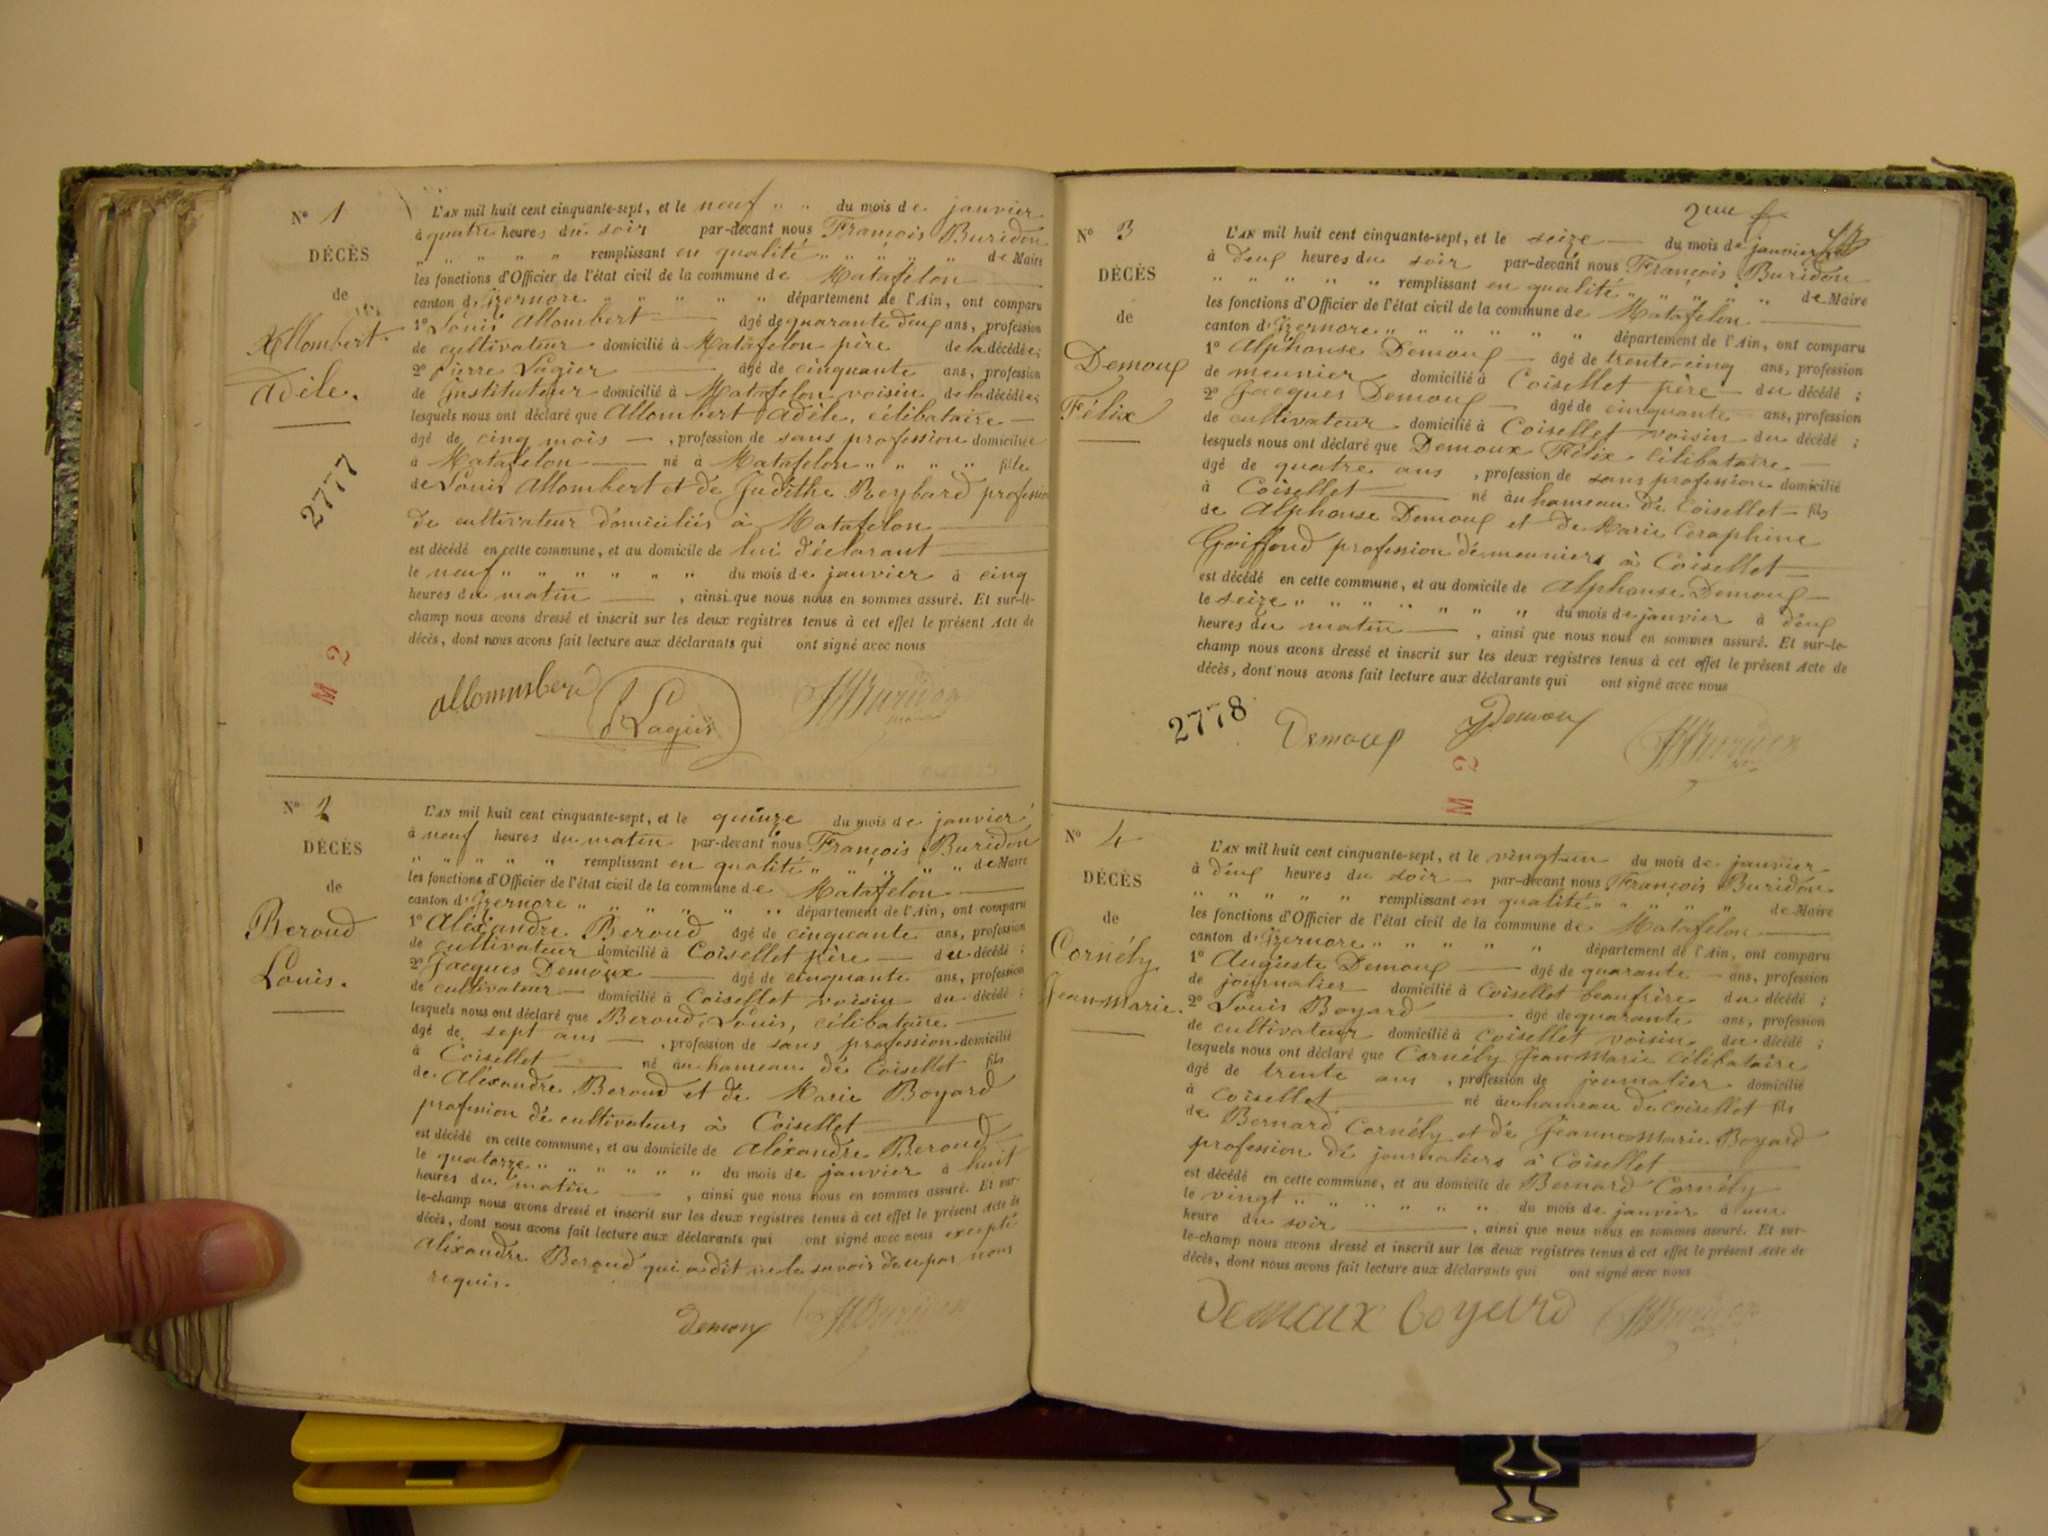 N° 1
DÉCÈS
de
Allombert
Adèle.
2777
M 2
L'AN mil huit cent cinquante-sept, et le neuf " " du mois de janvier
à quatre heures du soir par-devant nous François Buridon
" " " " " remplissant en qualité " " " " " de Maire
les fonctions d'Officier de l'état civil de la commune de Matafelon
canton d'Izernore " " " " " département de l'Ain, ont comparu
1° Louis Allombert âgé de quarante deux ans, profession
de cultivateur domicilié à Matafelon père de la décédée;
2° Pierre Lagier âgé de cinquante ans, profession
de Instituteur domicilié à Matafelon voisin de la décédée;
lesquels nous ont déclaré que Allombert Adèle, célibataire
âgé de cinq mois , profession de sans profession domiciliée
à Matafelon né à Matafelon " " " " fille
de Louis Allombert et de Judithe Reybard profession
de cultivateur domiciliés à Matafelon
est décédé en cette commune, et au domicile de lui déclarant
le neuf " " " " " " du mois de janvier à cinq
heures du matin , ainsi que nous nous en sommes assuré. Et sur-le-
champ nous avons dressé et inscrit sur les deux registres tenus à cet effet le présent Acte de
décès, dont nous avons fait lecture aux déclarants qui ont signé avec nous
Allombert P Lagier Buridon
N° 2
DÉCÈS
de
Beroud
Louis.
L'AN mil huit cent cinquante-sept, et le quinze du mois de janvier
à neuf heures du matin par-devant nous François Buridon
" " " " " remplissant en qualité " " " " " de Maire
les fonctions d'Officier de l'état civil de la commune de Matafelon
canton d'Izernore " " " " " " département de l'Ain, ont comparu
1° Aléxandre Beroud âgé de cinquante ans, profession
de cultivateur domicilié à Coisellet père du décédé;
2° Jacques Demoux âgé de cinquante ans, profession
de cultivateur domicilié à Coisellet voisin du décédé;
lesquels nous ont déclaré que Beroud, Louis, célibataire
âgé de sept ans , profession de sans profession domicilié
à Coisellet né au hameau de Coisellet fils
de Aléxandre Beroud et de Marie Boyard
profession de cultivateurs à Coisellet
est décédé en cette commune, et au domicile de Aléxandre Beroud
le quatorze " " " " " " du mois de janvier à huit
heures du matin , ainsi que nous nous en sommes assuré. Et sur-
le-champ nous avons dressé et inscrit sur les deux registres tenus à cet effet le présent Acte de
décès, dont nous avons fait lecture aux déclarants qui ont signé avec nous excepté
Aléxandre Beroud qui a dit ne le savoir de ce par nous
requis.
Demoux Buridon
2me f.
N° 3
DÉCÈS
de
Demoux
Félix
L'AN mil huit cent cinquante-sept, et le seize du mois de janvier
à deux heures du soir par-devant nous François Buridon
" " " " " remplissant en qualité " " " " " de Maire
les fonctions d'Officier de l'état civil de la commune de Matafelon
canton d'Izernore " " " " " " département de l'Ain, ont comparu
1° Alphonse Demoux âgé de trente-cinq ans, profession
de meunier domicilié à Coisellet père du décédé;
2° Jacques Demoux âgé de cinquante ans, profession
de cultivateur domicilié à Coisellet voisin du décédé;
lesquels nous ont déclaré que Demoux Félix célibataire
âgé de quatre ans , profession de sans profession domicilié
à Coisellet né au hameau de Coisellet fils
de Alphonse Demoux et de Marie Ceraphine
Goiffond profession de meuniers à Coisellet
est décédé en cette commune, et au domicile de Alphonse Demoux
le seize " " " " " " " du mois de janvier à deux
heures du matin , ainsi que nous nous en sommes assuré. Et sur-le-
champ nous avons dressé et inscrit sur les deux registres tenus à cet effet le présent Acte de
décès, dont nous avons fait lecture aux déclarants qui ont signé avec nous
2778
Demoux J Demoux Buridon
M 2
N° 4
DÉCÈS
de
Cornély
Jean-marie.
L'AN mil huit cent cinquante-sept, et le vingt-un du mois de janvier
à deux heures du soir par-devant nous François Buridon
" " " " " remplissant en qualité " " " " " de Maire
les fonctions d'Officier de l'état civil de la commune de Matafelon
canton d'Izernore " " " " " département de l'Ain, ont comparu
1° Auguste Demoux âgé de quarante ans, profession
de journalier domicilié à Coisellet beaufrère du décédé;
2° Louis Boyard âgé de quarante ans, profession
de cultivateur domicilié à Coisellet voisin du décédé;
lesquels nous ont déclaré que Cornély Jean-Marie célibataire
âgé de trente ans , profession de journalier domicilié
à Coisellet né au hameau de Coisellet fils
de Bernard Cornély et de Jeanne-Marie Boyard
profession de journaliers à Coisellet
est décédé en cette commune, et au domicile de Bernard Cornély
le vingt " " " " " " du mois de janvier à une
heure du soir , ainsi que nous nous en sommes assuré. Et sur-
le-champ nous avons dressé et inscrit sur les deux registres tenus à cet effet le présent Acte de
décès, dont nous avons fait lecture aux déclarants qui ont signé avec nous
Demoux boyard Buridon